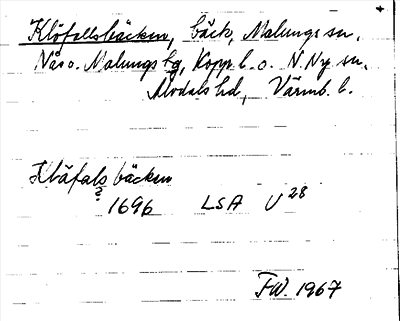 Klöfallsbäcken, bäck, Malungs sn,
Nås o. Malungs tg, Kopp. l. o. N. Ny sn,
Älvdals hd, Värml. l.
Klåfals bäcken
?
1696 LSA U 28
F.W. 1967